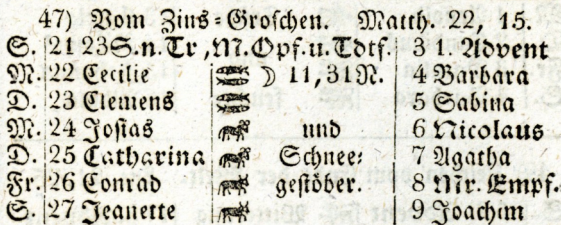 47) Vom Zins-Groschen. Matth. 22, 15.
S. 21 23S.n.Tr,M.Opf.u.Tdtf. 3 1. Advent
M. 22 Cecilie ☽ 11,31N. 4 Barbara
D. 23 Clemens 5 Sabina
M. 24 Josias und 6 Nicolaus
D. 25 Catharina Schnee- 7 Agatha
Fr. 26 Conrad gestöber. 8 Mr. Empf.
S. 27 Jeanette 9 Joachim